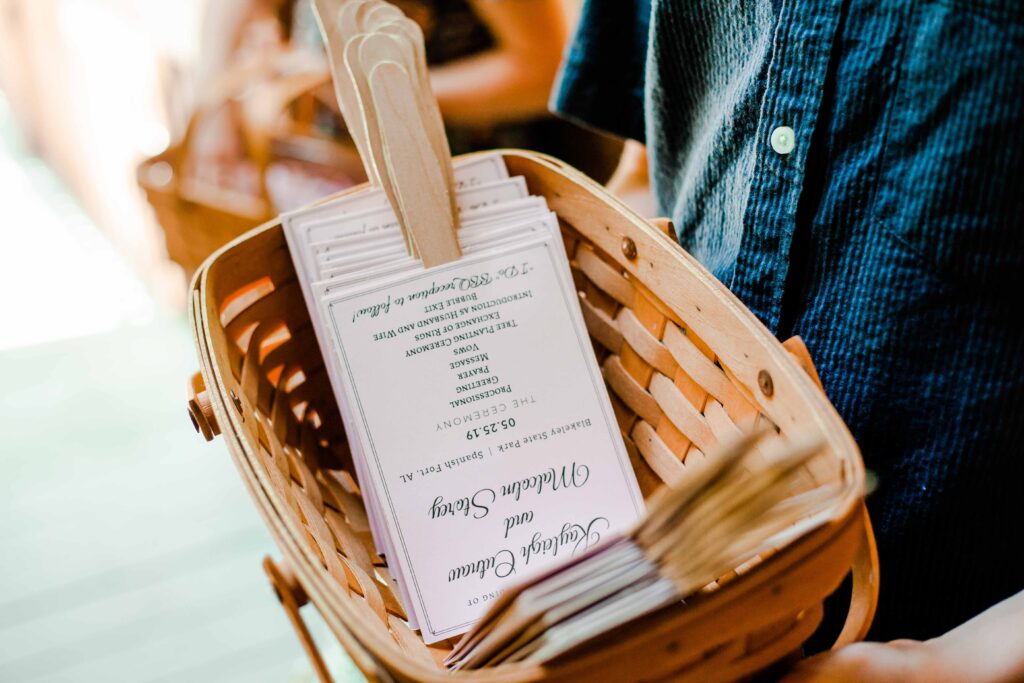 DING OF
Kayleigh Cutnaw
and
Malcolm Storey
Blakeley State Park | Spanish Fort, AL
05.25.19
THE CEREMONY
PROCESSIONAL
GREETING
PRAYER
MESSAGE
VOWS
TREE PLANTING CEREMONY
EXCHANGE OF RINGS
INTRODUCTION AS HUSBAND AND WIFE
BUBBLE EXIT
"I Do" BBQ reception to follow!